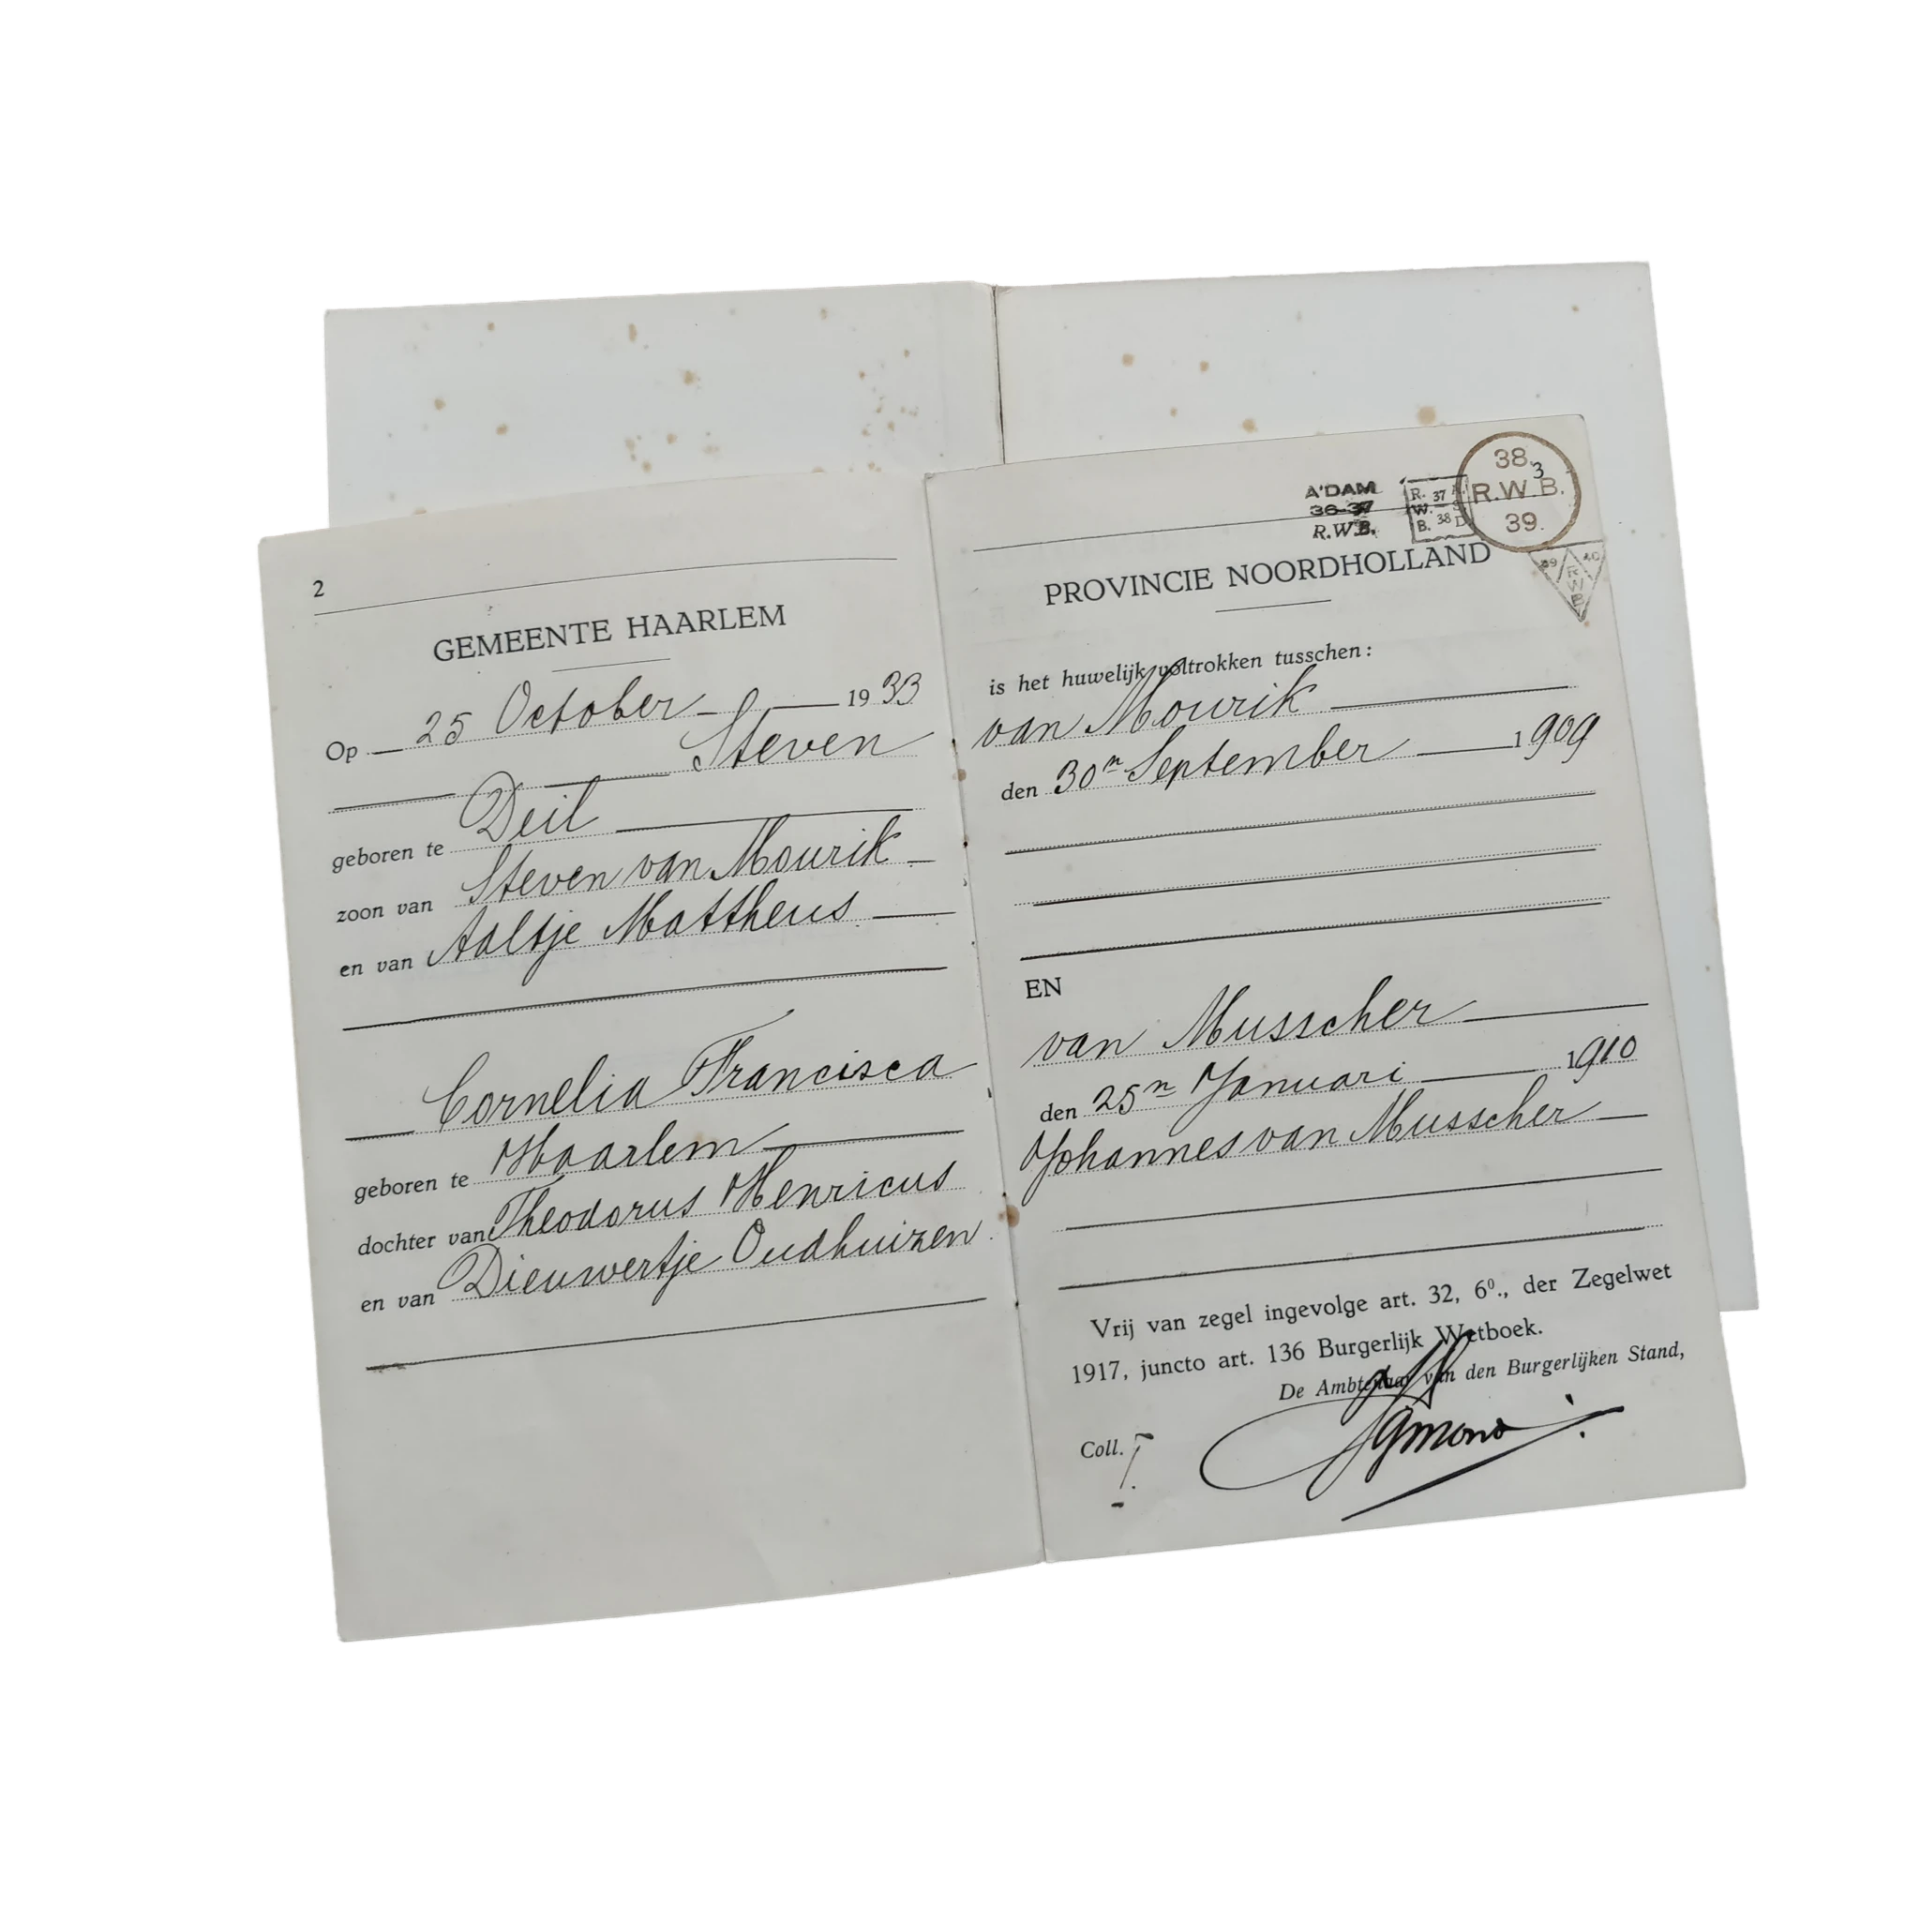 2
GEMEENTE HAARLEM
Op 25 October 1933
Steven
geboren te Deil
zoon van Steven van Mourik
en van Aaltje Mattheus
Cornelia Francisca
geboren te Haarlem
dochter van Theodorus Henricus
en van Dieuwertje Oudhuizen
A'DAM
36-37
R.W.B.
R. 37 A.
W. S
B. 38 D.
38.
3
R.W.B.
39.
39 RWB 40
PROVINCIE NOORDHOLLAND
is het huwelijk voltrokken tusschen:
van Mourik
den 30n September 1909
EN
van Musscher
den 25n Januari 1910
Johannes van Musscher
Vrij van zegel ingevolge art. 32, 6⁰., der Zegelwet
1917, juncto art. 136 Burgerlijk Wetboek.
De Ambtenaar van den Burgerlijken Stand,
Coll.